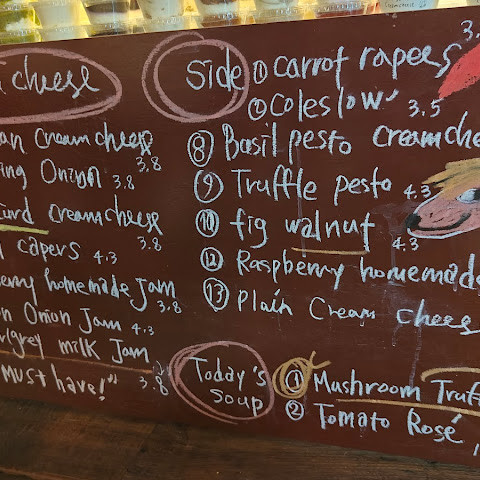 cheese
cream cheese
3.8
Onion 3.8
cream cheese
3.8
capers 4.3
homemade Jam
3.8
Onion Jam 4.3
milk Jam
Must have!" 3.8
Side ① carrot rapees
3.
② Coleslow 3,5
⑧ Basil pesto cream che
⑨ Truffle pesto 4.3
⑩ fig walnut
4.3
⑫ Raspberry homemade
⑬ plain cream chees
Today's
soup
① Mushroom Truf
② Tomato Rosé